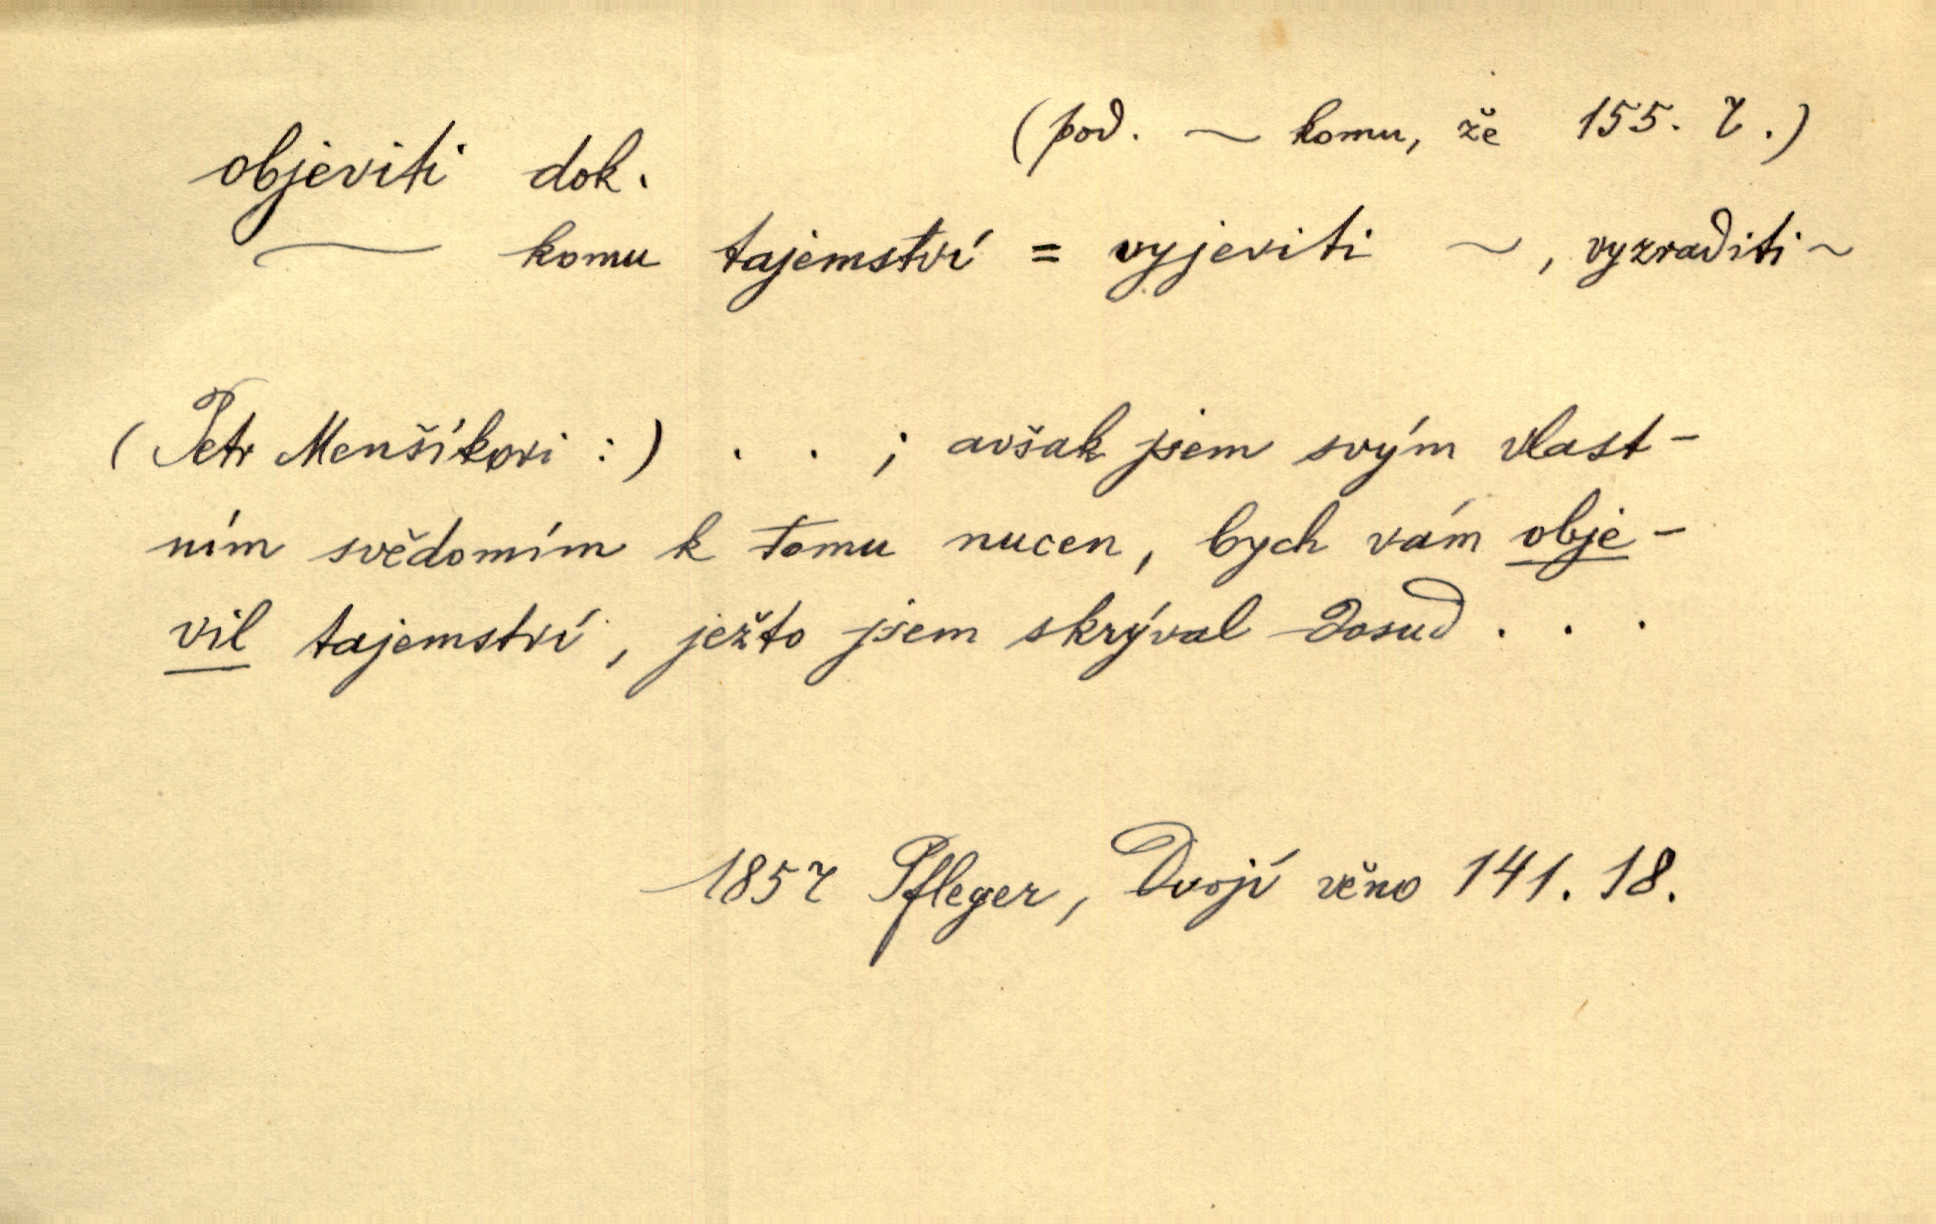 (pod. ~ komu, že 155. 7.)
objeviti dok.
~ komu tajemství = vyjeviti ~, vyzraditi ~
(Petr Menšíkovi:) . . ; avšak jsem svým vlast-
ním svědomím k tomu nucen, bych vám obje-
vil tajemství, ježto jsem skrýval dosud . . .
1857 Pfleger, Dvojí věno 141. 18.